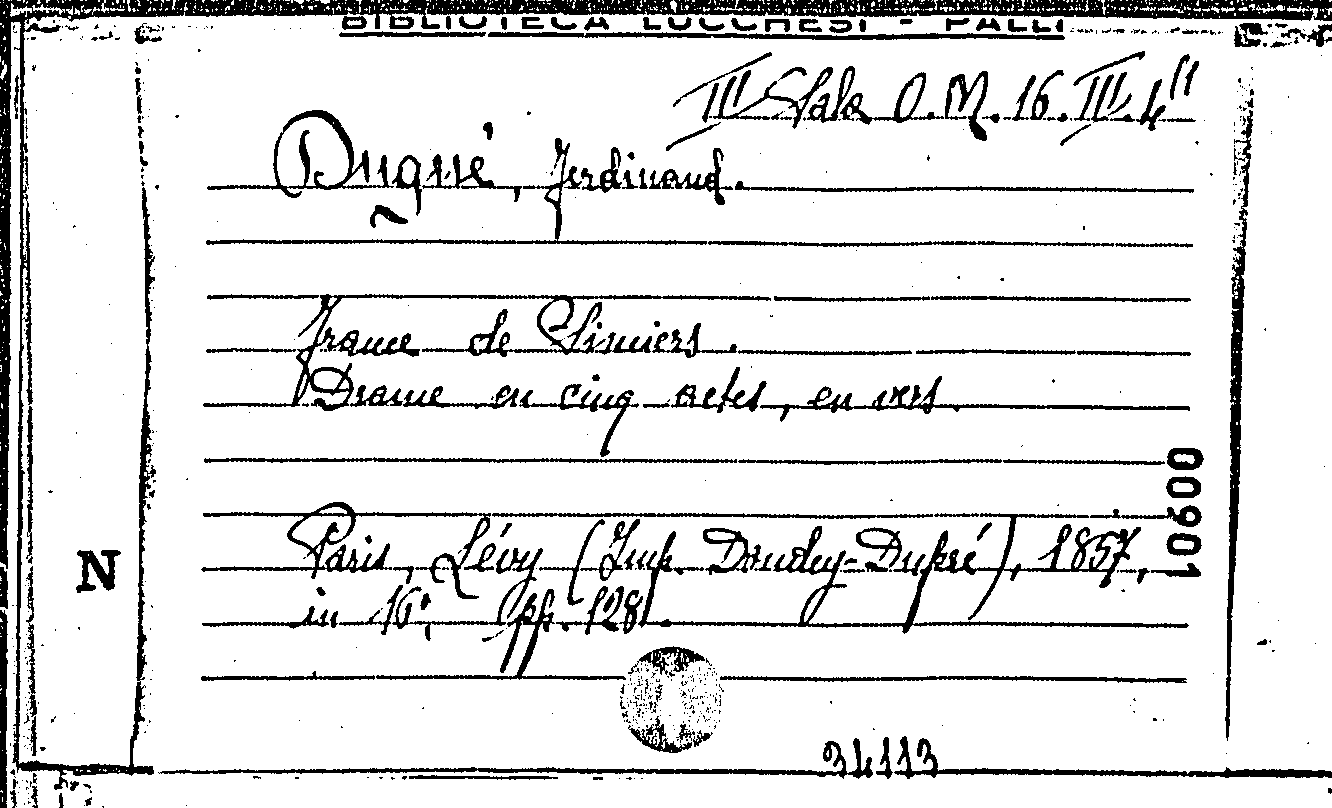 BIBLIOTECA LUCCHESI - PALLI
III Sala O.M. 16. III. 4"
Dugué, Ferdinand.
France de Simiers.
Drame en cinq actes, en vers.
Paris, Lévy (Imp. Dondey-Dupré), 1857,
in 16°, pp. 128.
N
00901
34113